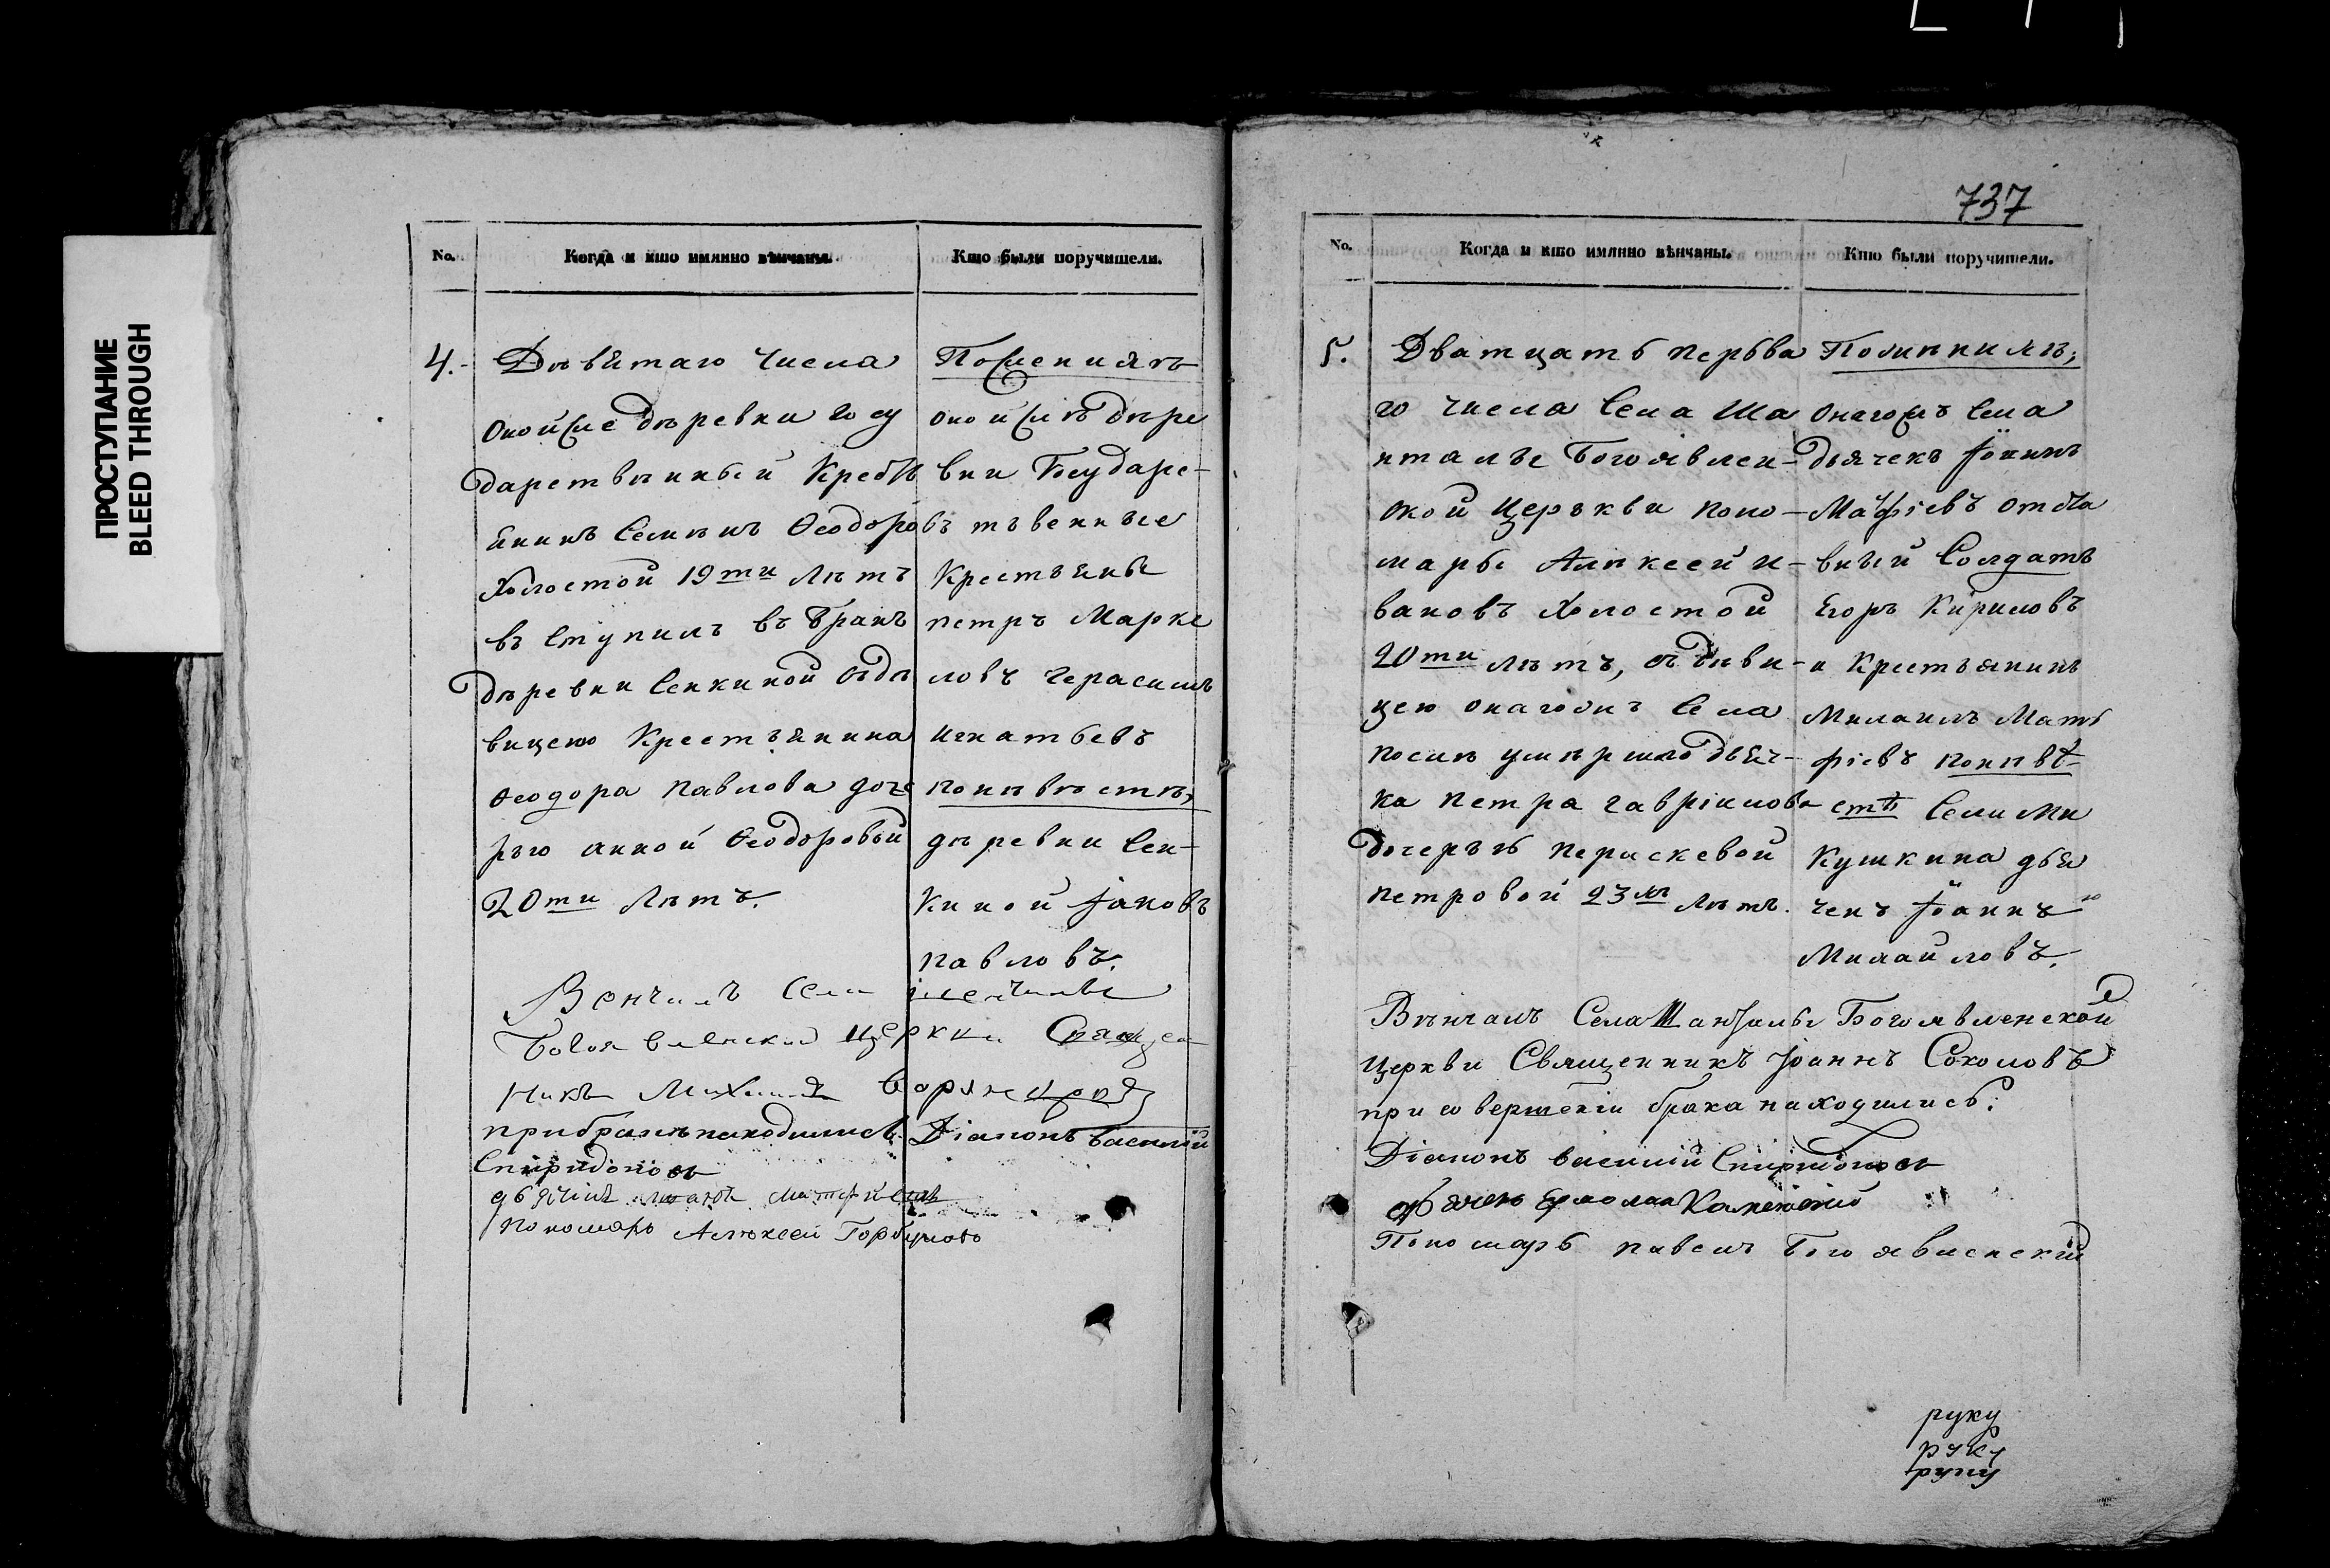 ПРОСТУПАНИЕ
BLEED THROUGH
No.
Когда и кто имянно вѣнчаны.
Кто были поручители.
4.
Девятаго числа
оной же деревни госу
дарственный Кресть
янинъ Семенъ Ѳеодоровъ
Холостой 19ти летъ
въ ступилъ въ бракъ
деревни Сенкиной съ де
вицею Крестьянина
Ѳеодора Павлова доче
рью анной Ѳеодоровый
20ти летъ.
По женихе
оной же дере
вни Государс-
твенные
Крестьяне
петръ Марке
ловъ Герасимъ
игнатьевъ
по невесте,
деревни Сен-
киной Іаковъ
павловъ.
Венчалъ Села
Богоявленской церкви Священ
никъ Михаилъ
при браке находились Діаконъ василій
Спиридоновъ
Пономарь Алексей Горбуновъ
737
No.
Когда и кто имянно вѣнчаны.
Кто были поручители.
5.
Дватцать перьва
го числа Села Ша
нталы Богоявлен-
ской Церькви поно-
марь Алексей И-
вановъ Холостой
20ти летъ, съ деви-
цею онагожъ Села
после умершаго дьяч-
ка петра гавріилова
дочерью перескевой
петровой 23 летъ.
По женихе,
онагожъ Села
дьячекъ Іоаннъ
Мафіевъ отста
вный Солдатъ
Егоръ Кириловъ
и Крестьянинъ
Михаилъ Мать
фіевъ по невѣ-
стѣ Села Ми
кушкина дья
чекъ Іоаннъ
Михайловъ.
Венчалъ Села Шанталы Богоявленской
Церкви Священникъ Іоаннъ Соколовъ
при совершеніи брака находились:
Діаконъ василій Спиридоновъ
дьячекъ Ермолай Каменский
Пономарь павелъ Богоявленский
руку
руку
руку